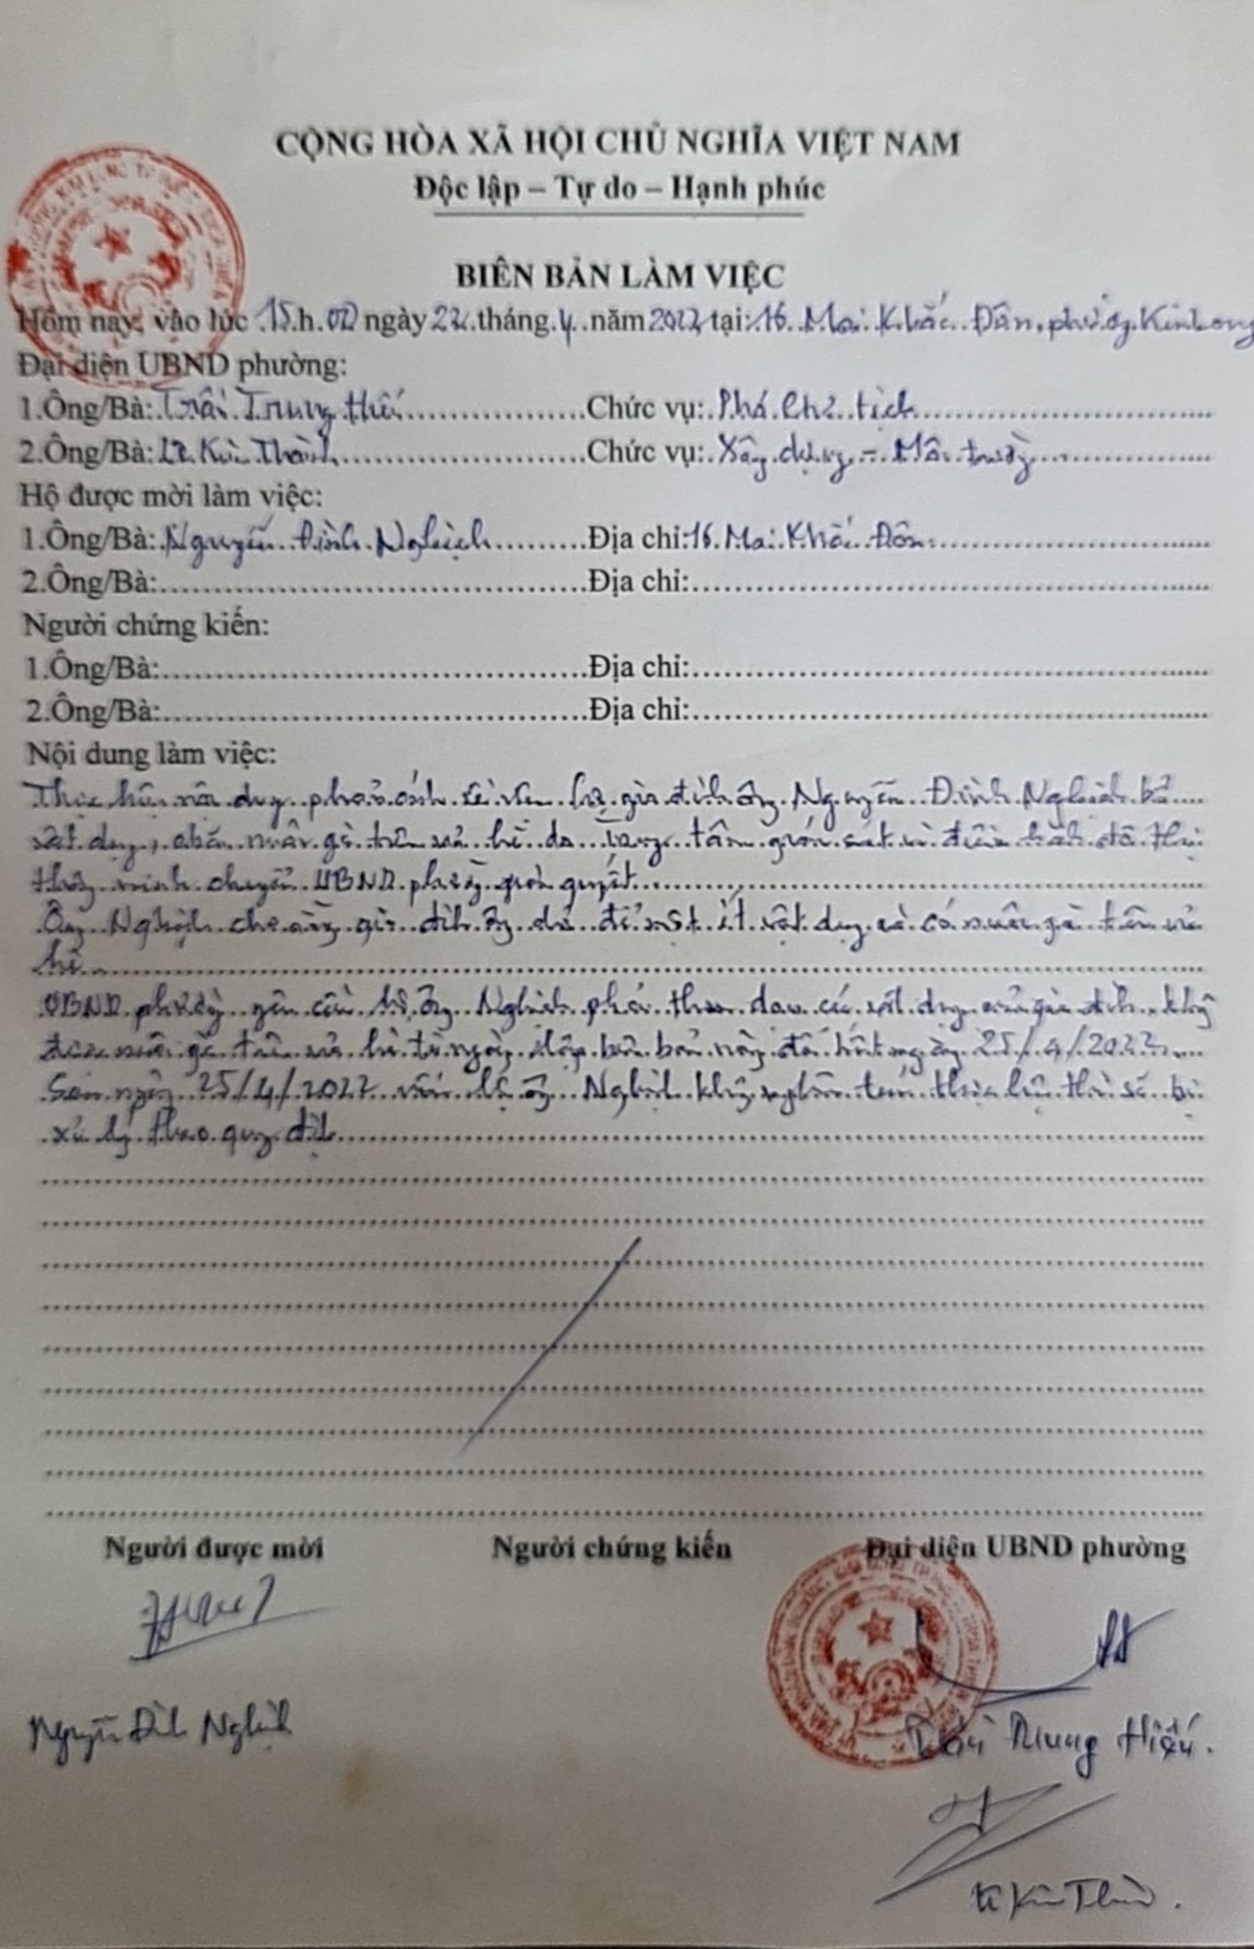 CỘNG HÒA XÃ HỘI CHỦ NGHĨA VIỆT NAM
Độc lập – Tự do – Hạnh phúc
BIÊN BẢN LÀM VIỆC
Hôm nay, vào lúc 15.h.00 ngày 22 tháng 4 năm 2022 tại: 16 Mai Khắc Đôn, phường Kim Long
Đại diện UBND phường:
1.Ông/Bà: Trần Trung Hiếu Chức vụ: Phó Chủ tịch
2.Ông/Bà: Lê Kim Thành Chức vụ: Xây dựng – Môi trường
Hộ được mời làm việc:
1.Ông/Bà: Nguyễn Đình Nghịch Địa chỉ: 16 Mai Khắc Đôn
2.Ông/Bà: Địa chỉ:
Người chứng kiến:
1.Ông/Bà: Địa chỉ:
2.Ông/Bà: Địa chỉ:
Nội dung làm việc:
nội dung phản ánh về việc hộ gia đình ông Nguyễn Đình Nghịch bỏ
vật dụng, chăn nuôi gà trên vỉa hè do Trung tâm giám sát và điều hành đô thị
thông minh chuyển UBND phường giải quyết
Ông Nghịch cho rằng gia đình ông chỉ để một ít vật dụng và có nuôi gà trên vỉa
hè
UBND phường yêu cầu hộ ông Nghịch phải thu dọn các vật dụng của gia đình, không
được nuôi gà trên vỉa hè từ ngày lập biên bản này đến hết ngày 25/4/2022
Sau ngày 25/4/2022 nếu hộ ông Nghịch không nghiêm túc thực hiện thì sẽ bị
xử lý theo quy định
Người được mời Người chứng kiến Đại diện UBND phường
Nguyễn Đình Nghịch
Trần Trung Hiếu.
Lê Kim Thành.